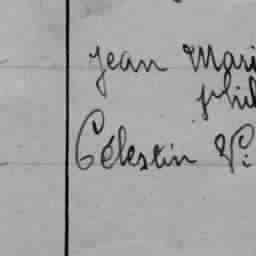 Jean Mari
phil
Célestin Vi